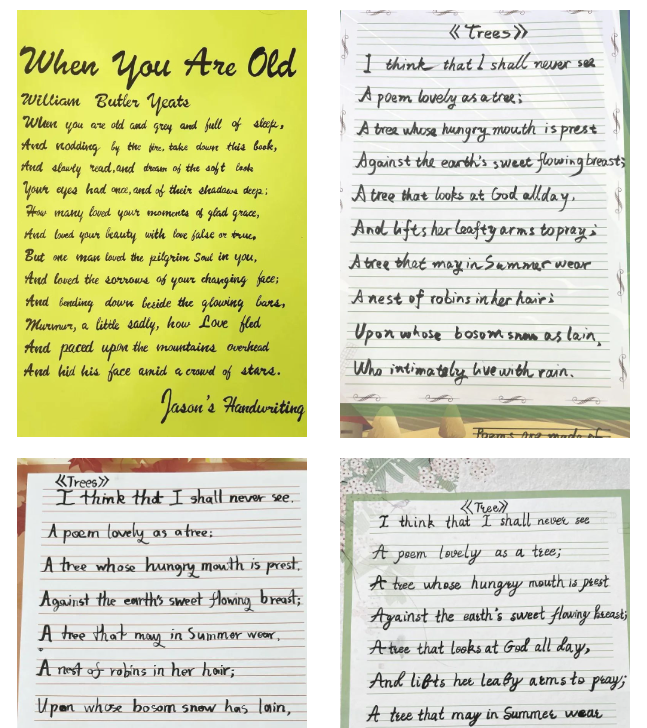 When You Are Old
William Butler Yeats
When you are old and grey and full of sleep,
And nodding by the fire, take down this book,
And slowly read, and dream of the soft look
Your eyes had once, and of their shadows deep;
How many loved your moments of glad grace,
And loved your beauty with love false or true,
But one man loved the pilgrim Soul in you,
And loved the sorrows of your changing face;
And bending down beside the glowing bars,
Murmur, a little sadly, how Love fled
And paced upon the mountains overhead
And hid his face amid a crowd of stars.
Jason's Handwriting
《Trees》
I think that I shall never see
A poem lovely as a tree;
A tree whose hungry mouth is prest
Against the earth's sweet flowing breast;
A tree that looks at God all day,
And lifts her leafty arms to pray;
A tree that may in Summer wear
A nest of robins in her hair;
Upon whose bosom snow as lain,
Who intimately live with rain.
Poems are made of
《Trees》
I think that I shall never see.
A poem lovely as a tree;
A tree whose hungry mouth is prest.
Against the earth's sweet flowing breast;
A tree that may in Summer wear,
A nest of robins in her hair;
Upon whose bosom snow has lain,
《Tree》
I think that I shall never see
A poem lovely as a tree;
A tree whose hungry mouth is prest
Against the earth's sweet flowing breast;
A tree that looks at God all day,
And lifts her leafy arms to pray;
A tree that may in Summer wear